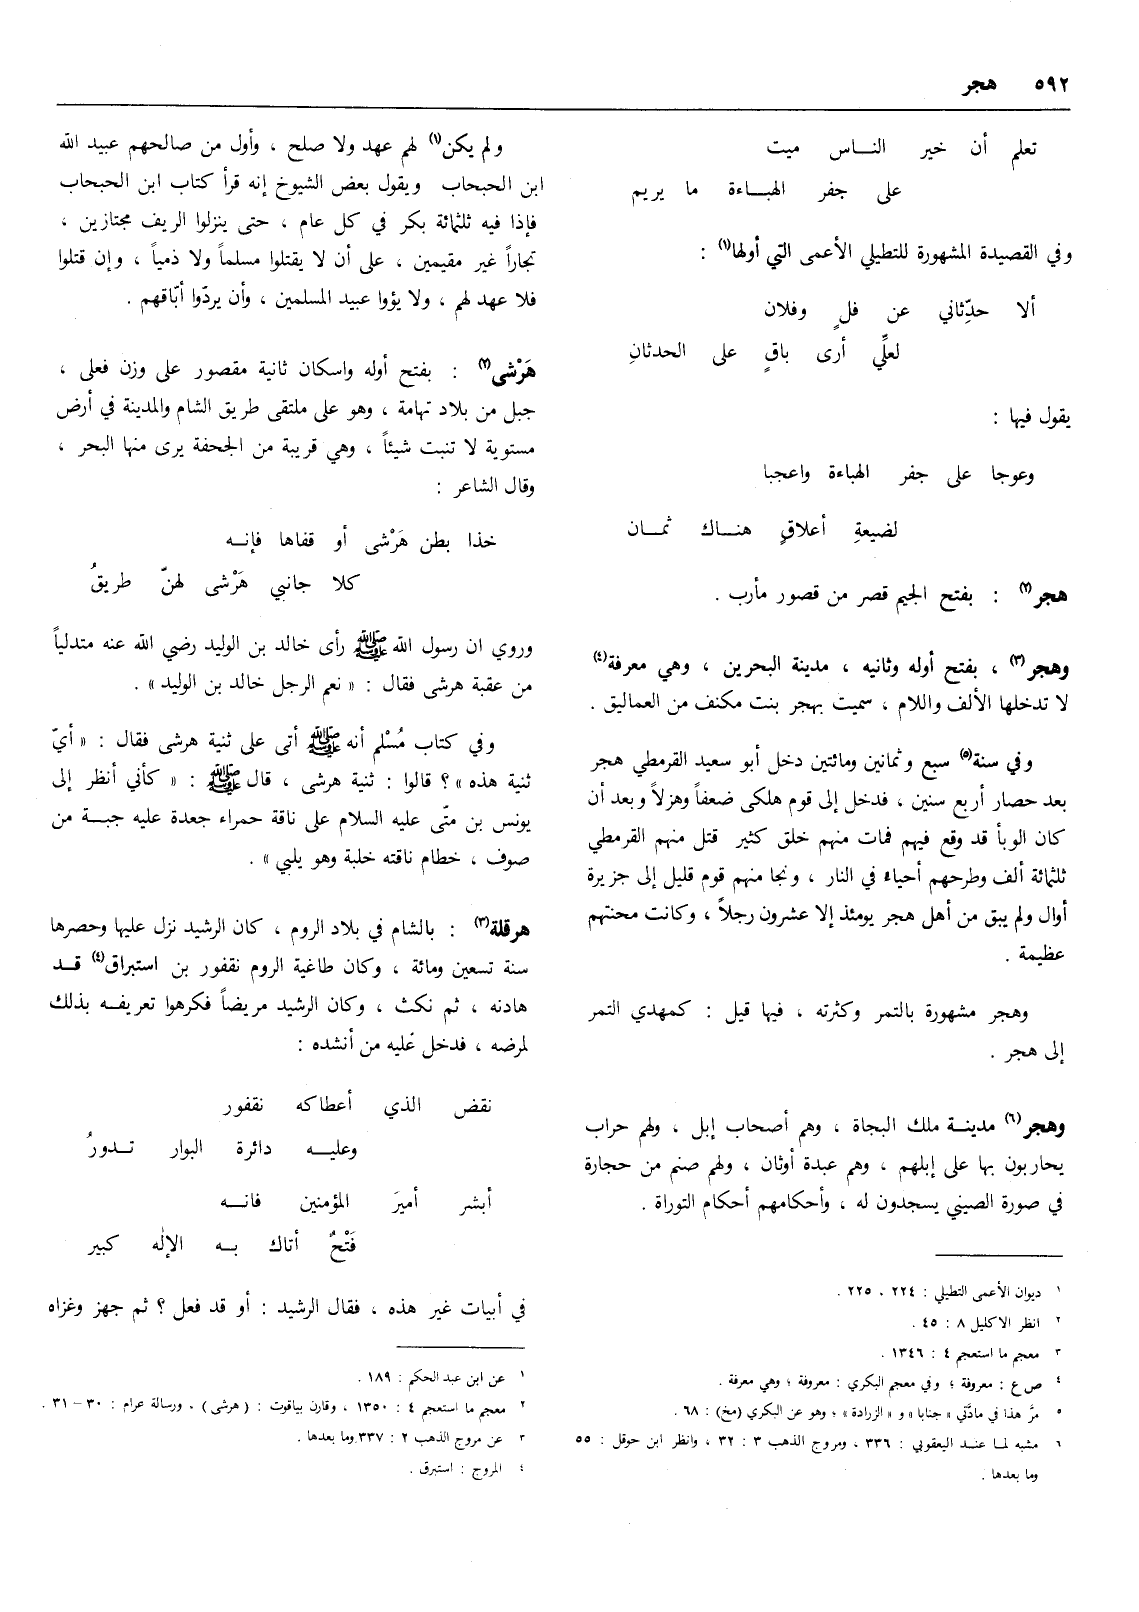 ٥٩٢ هجر
تعلم أن خير النـاس ميت
على جفر الهبـاءة ما يريم
وفي القصيدة المشهورة للتطيلي الأعمى التي أولها(١) :
ألا حدِّثاني عن فلٍ وفلان
لعلِّي أرى باقٍ على الحدثانِ
يقول فيها :
وعوجا على جفر الهباءة واعجبا
لضيعةِ أعلاقٍ هنـاك ثمـان
هجر(٢) : بفتح الجيم قصر من قصور مأرب .
وهجر(٣) ، بفتح أوله وثانيه ، مدينة البحرين ، وهي معرفة(٤)
لا تدخلها الألف واللام ، سميت بهجر بنت مكنف من العماليق .
وفي سنة(٥) سبع وثمانين ومائتين دخل أبو سعيد القرمطي هجر
بعد حصار أربع سنين ، فدخل إلى قوم هلكى ضعفاً وهزلاً وبعد أن
كان الوبأ قد وقع فيهم فمات منهم خلق كثير قتل منهم القرمطي
ثلثمائة ألف وطرحهم أحياء في النار ، ونجا منهم قوم قليل إلى جزيرة
أوال ولم يبق من أهل هجر يومئذ إلا عشرون رجلاً ، وكانت محنتهم
عظيمة .
وهجر مشهورة بالتمر وكثرته ، فيها قيل : كمهدي التمر
إلى هجر .
وهجر(٦) مدينـة ملك البجاة ، وهم أصحاب إبل ، ولهم حراب
يحاربون بها على إبلهم ، وهم عبدة أوثان ، ولهم صنم من حجارة
في صورة الصيني يسجدون له ، وأحكامهم أحكام التوراة .
١ ديوان الأعمى التطيلي : ٢٢٤ ، ٢٢٥ .
٢ انظر الاكليل ٨ : ٤٥ .
٣ معجم ما استعجم ٤ : ١٣٤٦ .
٤ ص ع : معروفة ؛ وفي معجم البكري : معروفة ؛ وهي معرفة .
٥ مرَّ هذا في مادّتي « جنابا » و « الزرادة » ؛ وهو عن البكري (مخ) : ٦٨ .
٦ مشبه لمـا عنـد اليعقوبي : ٣٣٦ ، ومروج الذهب ٣ : ٣٢ ، وانظر ابن حوقل : ٥٥
وما بعدها .
ولم يكن(١) لهم عهد ولا صلح ، وأول من صالحهم عبيد الله
ابن الحبحاب ويقول بعض الشيوخ إنه قرأ كتاب ابن الحبحاب
فإذا فيه ثلثمائة بكر في كل عام ، حتى ينزلوا الريف مجتازين ،
تجاراً غير مقيمين ، على أن لا يقتلوا مسلماً ولا ذمياً ، وإن قتلوا
فلا عهد لهم ، ولا يؤوا عبيد المسلمين ، وأن يردّوا أبّاقهم .
هَرْشى(٢) : بفتح أوله واسكان ثانية مقصور على وزن فعلى ،
جبل من بلاد تهامة ، وهو على ملتقى طريق الشام والمدينة في أرض
مستوية لا تنبت شيئاً ، وهي قريبة من الجحفة يرى منها البحر ،
وقال الشاعر :
خذا بطن هَرْشى أو قفاها فإنـه
كلا جانبي هَرْشى لهنّ طريقُ
وروي ان رسول الله ﷺ رأى خالد بن الوليد رضي الله عنه متدلياً
من عقبة هرشى فقال : « نعم الرجل خالد بن الوليد » .
وفي كتاب مُسْلم أنه ﷺ أتى على ثنية هرشى فقال : « أيّ
ثنية هذه » ؟ قالوا : ثنية هرشى ، قال ﷺ : « كأني أنظر إلى
يونس بن متّى عليه السلام على ناقة حمراء جعدة عليه جبـة من
صوف ، خطام ناقته خلبة وهو يلبي » .
هرقلة(٣) : بالشام في بلاد الروم ، كان الرشيد نزل عليها وحصرها
سنة تسعين ومائة ، وكان طاغية الروم نقفور بن استبراق(٤) قـد
هادنه ، ثم نكث ، وكان الرشيد مريضاً فكرهوا تعريفـه بذلك
لمرضه ، فدخل عليه من أنشده :
نقض الذي أعطاكه نقفور
وعليـه دائرة البوار تـدورُ
أبشر أميرَ المؤمنين فانـه
فَتْحٌ أتاك بـه الإلٰه كبير
في أبيات غير هذه ، فقال الرشيد : أو قد فعل ؟ ثم جهز وغزاه
١ عن ابن عبد الحكم : ١٨٩ .
٢ معجم ما استعجم ٤ : ١٣٥٠ ، وقارن بياقوت : (هرشى) ، ورسالة عرام : ٣٠ - ٣١ .
٣ عن مروج الذهب ٢ : ٣٣٧ وما بعدها .
٤ المروج : استبرق .